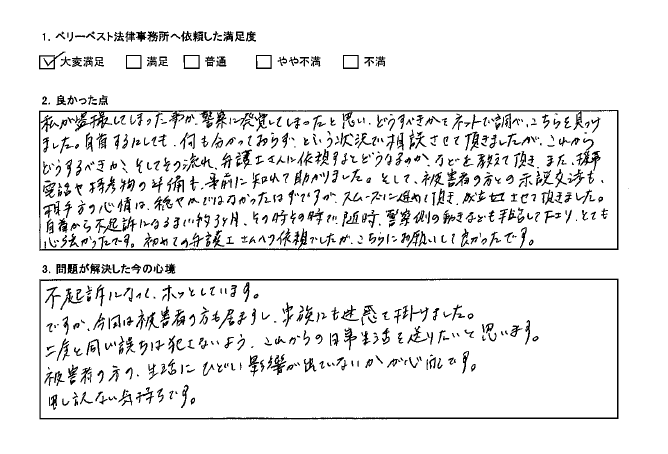 1. ベリーベスト法律事務所へ依頼した満足度
大変満足 満足 普通 やや不満 不満
2. 良かった点
私が盗撮してしまった事が、警察に発覚してしまったと思い、どうすべきかとネットで調べ、こちらを見つけ
ました。自首するにしても、何も分かっておらず、という状況で相談させて頂きましたが、これから
どうするべきか、そしてその流れ、弁護士さんに依頼するとどうなるのか、などを教えて頂き、また、携帯
電話や持参物の準備も、事前に知れて助かりました。そして、被害者の方との示談交渉も、
相手方の心情は、穏やかではなかったはずですが、スムーズに進めて頂き、成立させて頂きました。
自首から不起訴になるまで約3ヶ月、その時その時で、随時、警察側の動きなども連絡して下さり、とても
心強かったです。初めての弁護士さんへの依頼でしたが、こちらにお願いして良かったです。
3. 問題が解決した今の心境
不起訴になって、ホッとしています。
ですが、今回は被害者の方も居ますし、家族にも迷惑を掛けました。
二度と同じ誤ちは犯さないよう、これからの日常生活を送りたいと思います。
被害者の方の、生活に ひどい影響が出ていないかが心配です。
申し訳ない気持ちです。